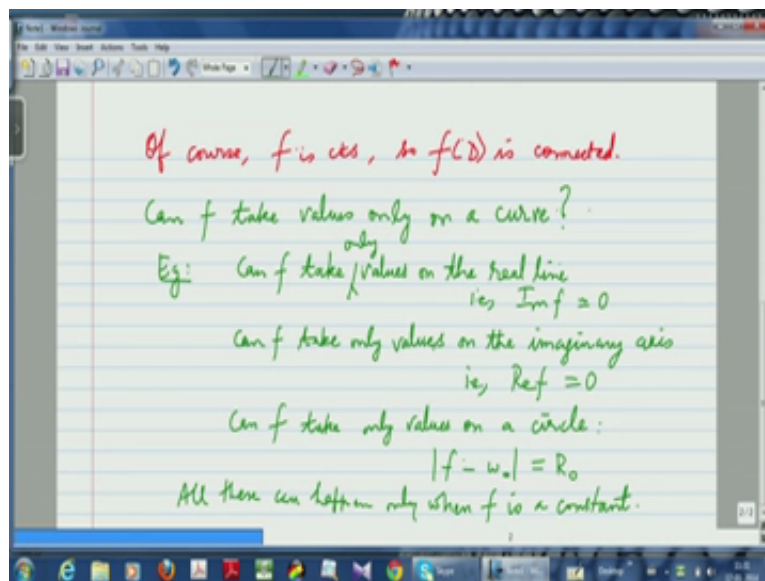 Note1 - Windows Journal
File Edit View Insert Actions Tools Help
Whole Page
Of course, f is cts, so f(D) is connected.
Can f take values only on a curve?
only
Eg: Can f take values on the real line
ie, Im f = 0
Can f take only values on the imaginary axis
ie, Re f = 0
Can f take only values on a circle:
|f - w₀| = R₀
All these can happen only when f is a constant.
2/2
2
Skype
Desktop